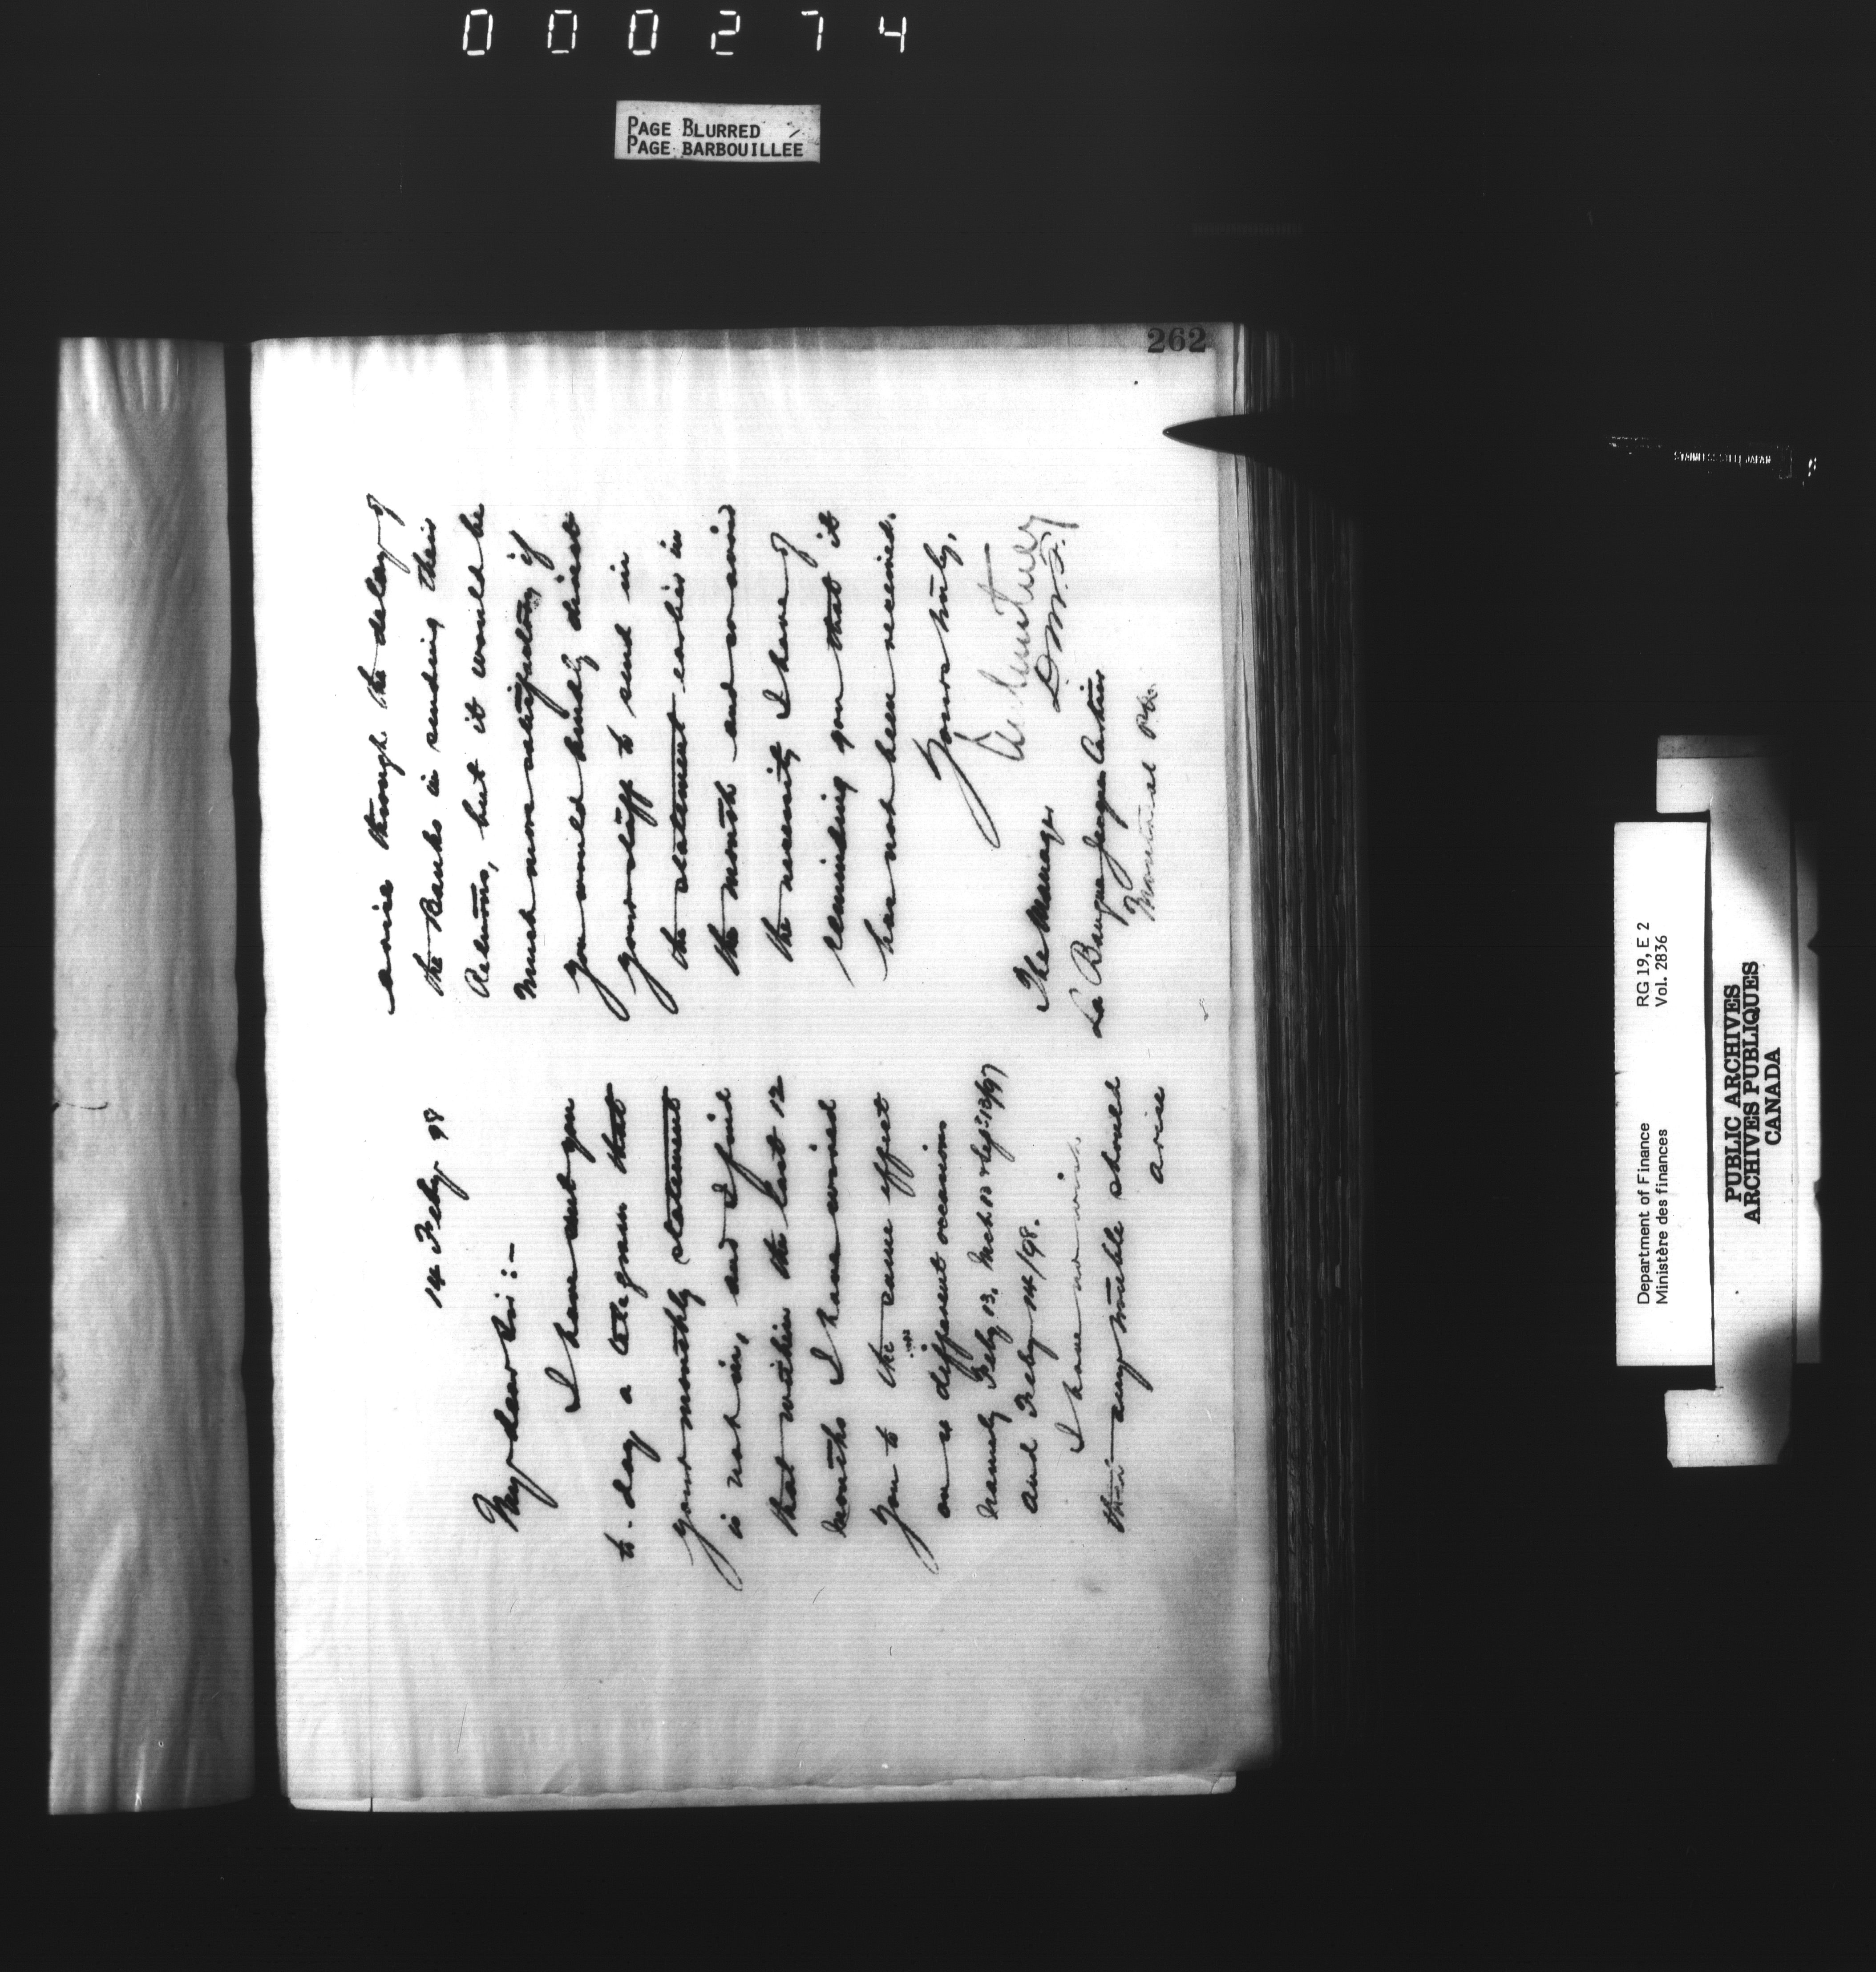 000274
PAGE BLURRED
PAGE BARBOUILLEE
262
14 Feby 98
My dear Sir:-
I have sent you
to-day a telegram that
your monthly statement
is not in, and I find
that within the last 12
months I have wired
you to the same effect
on 4 different occasions
namely Feby 13, Mch 13 & Sep: 13/97
and Feby 14/98.
I have no wish
that any trouble should
arise
arise through the delay of
the Banks in sending their
Returns, but it would be
much more satisfactory if
you would kindly direct
your staff to send in
the statement earlier in
the month and avoid
the necessity I have of
reminding you that it
has not been received.
Yours truly,
D.M.F.
The Manager
La Banque Jacques Cartier
Montreal P.Q.
STAINLESS STEEL JAPAN
Department of Finance RG 19, E 2
Ministère des finances Vol. 2836
PUBLIC ARCHIVES
ARCHIVES PUBLIQUES
CANADA